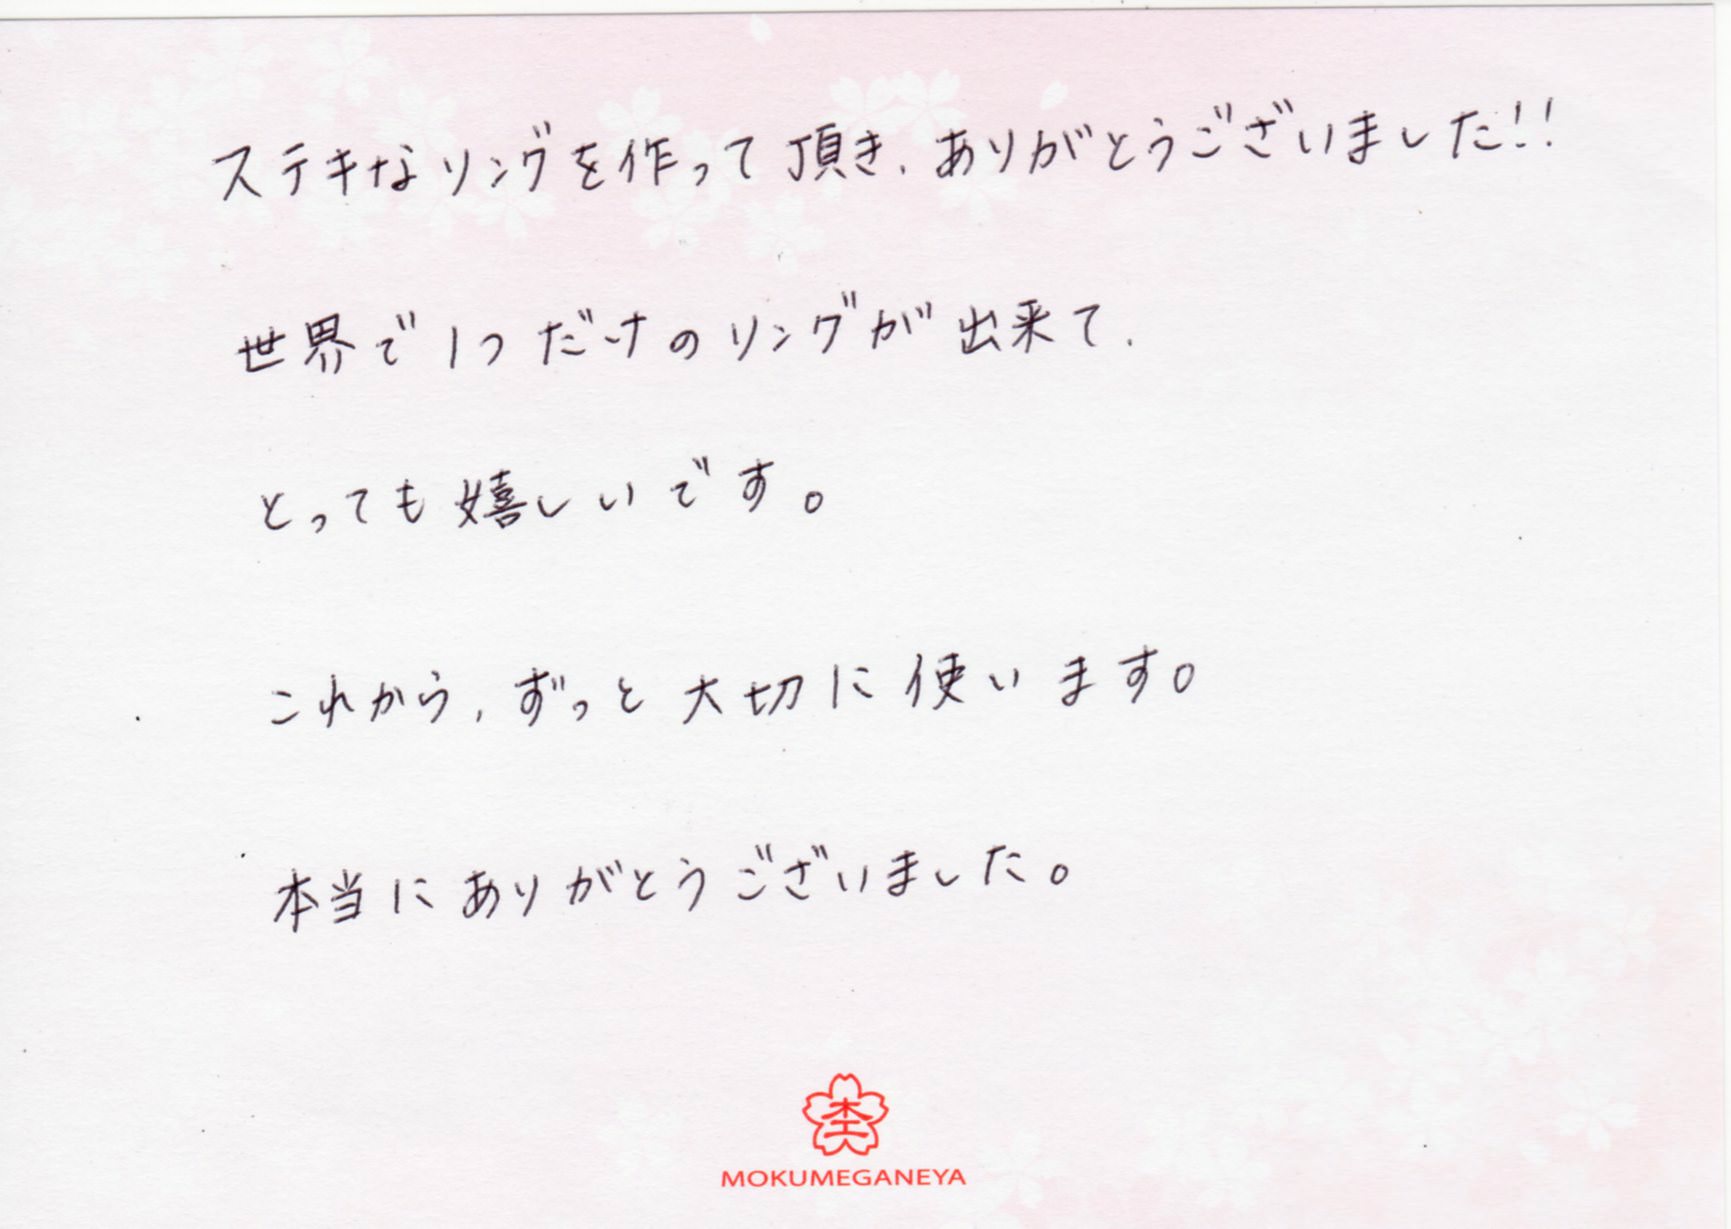 ステキなリングを作って頂き、ありがとうございました!!
世界で1つだけのリングが出来て、
とっても嬉しいです。
これから、ずっと大切に使います。
本当にありがとうございました。
杢
MOKUMEGANEYA